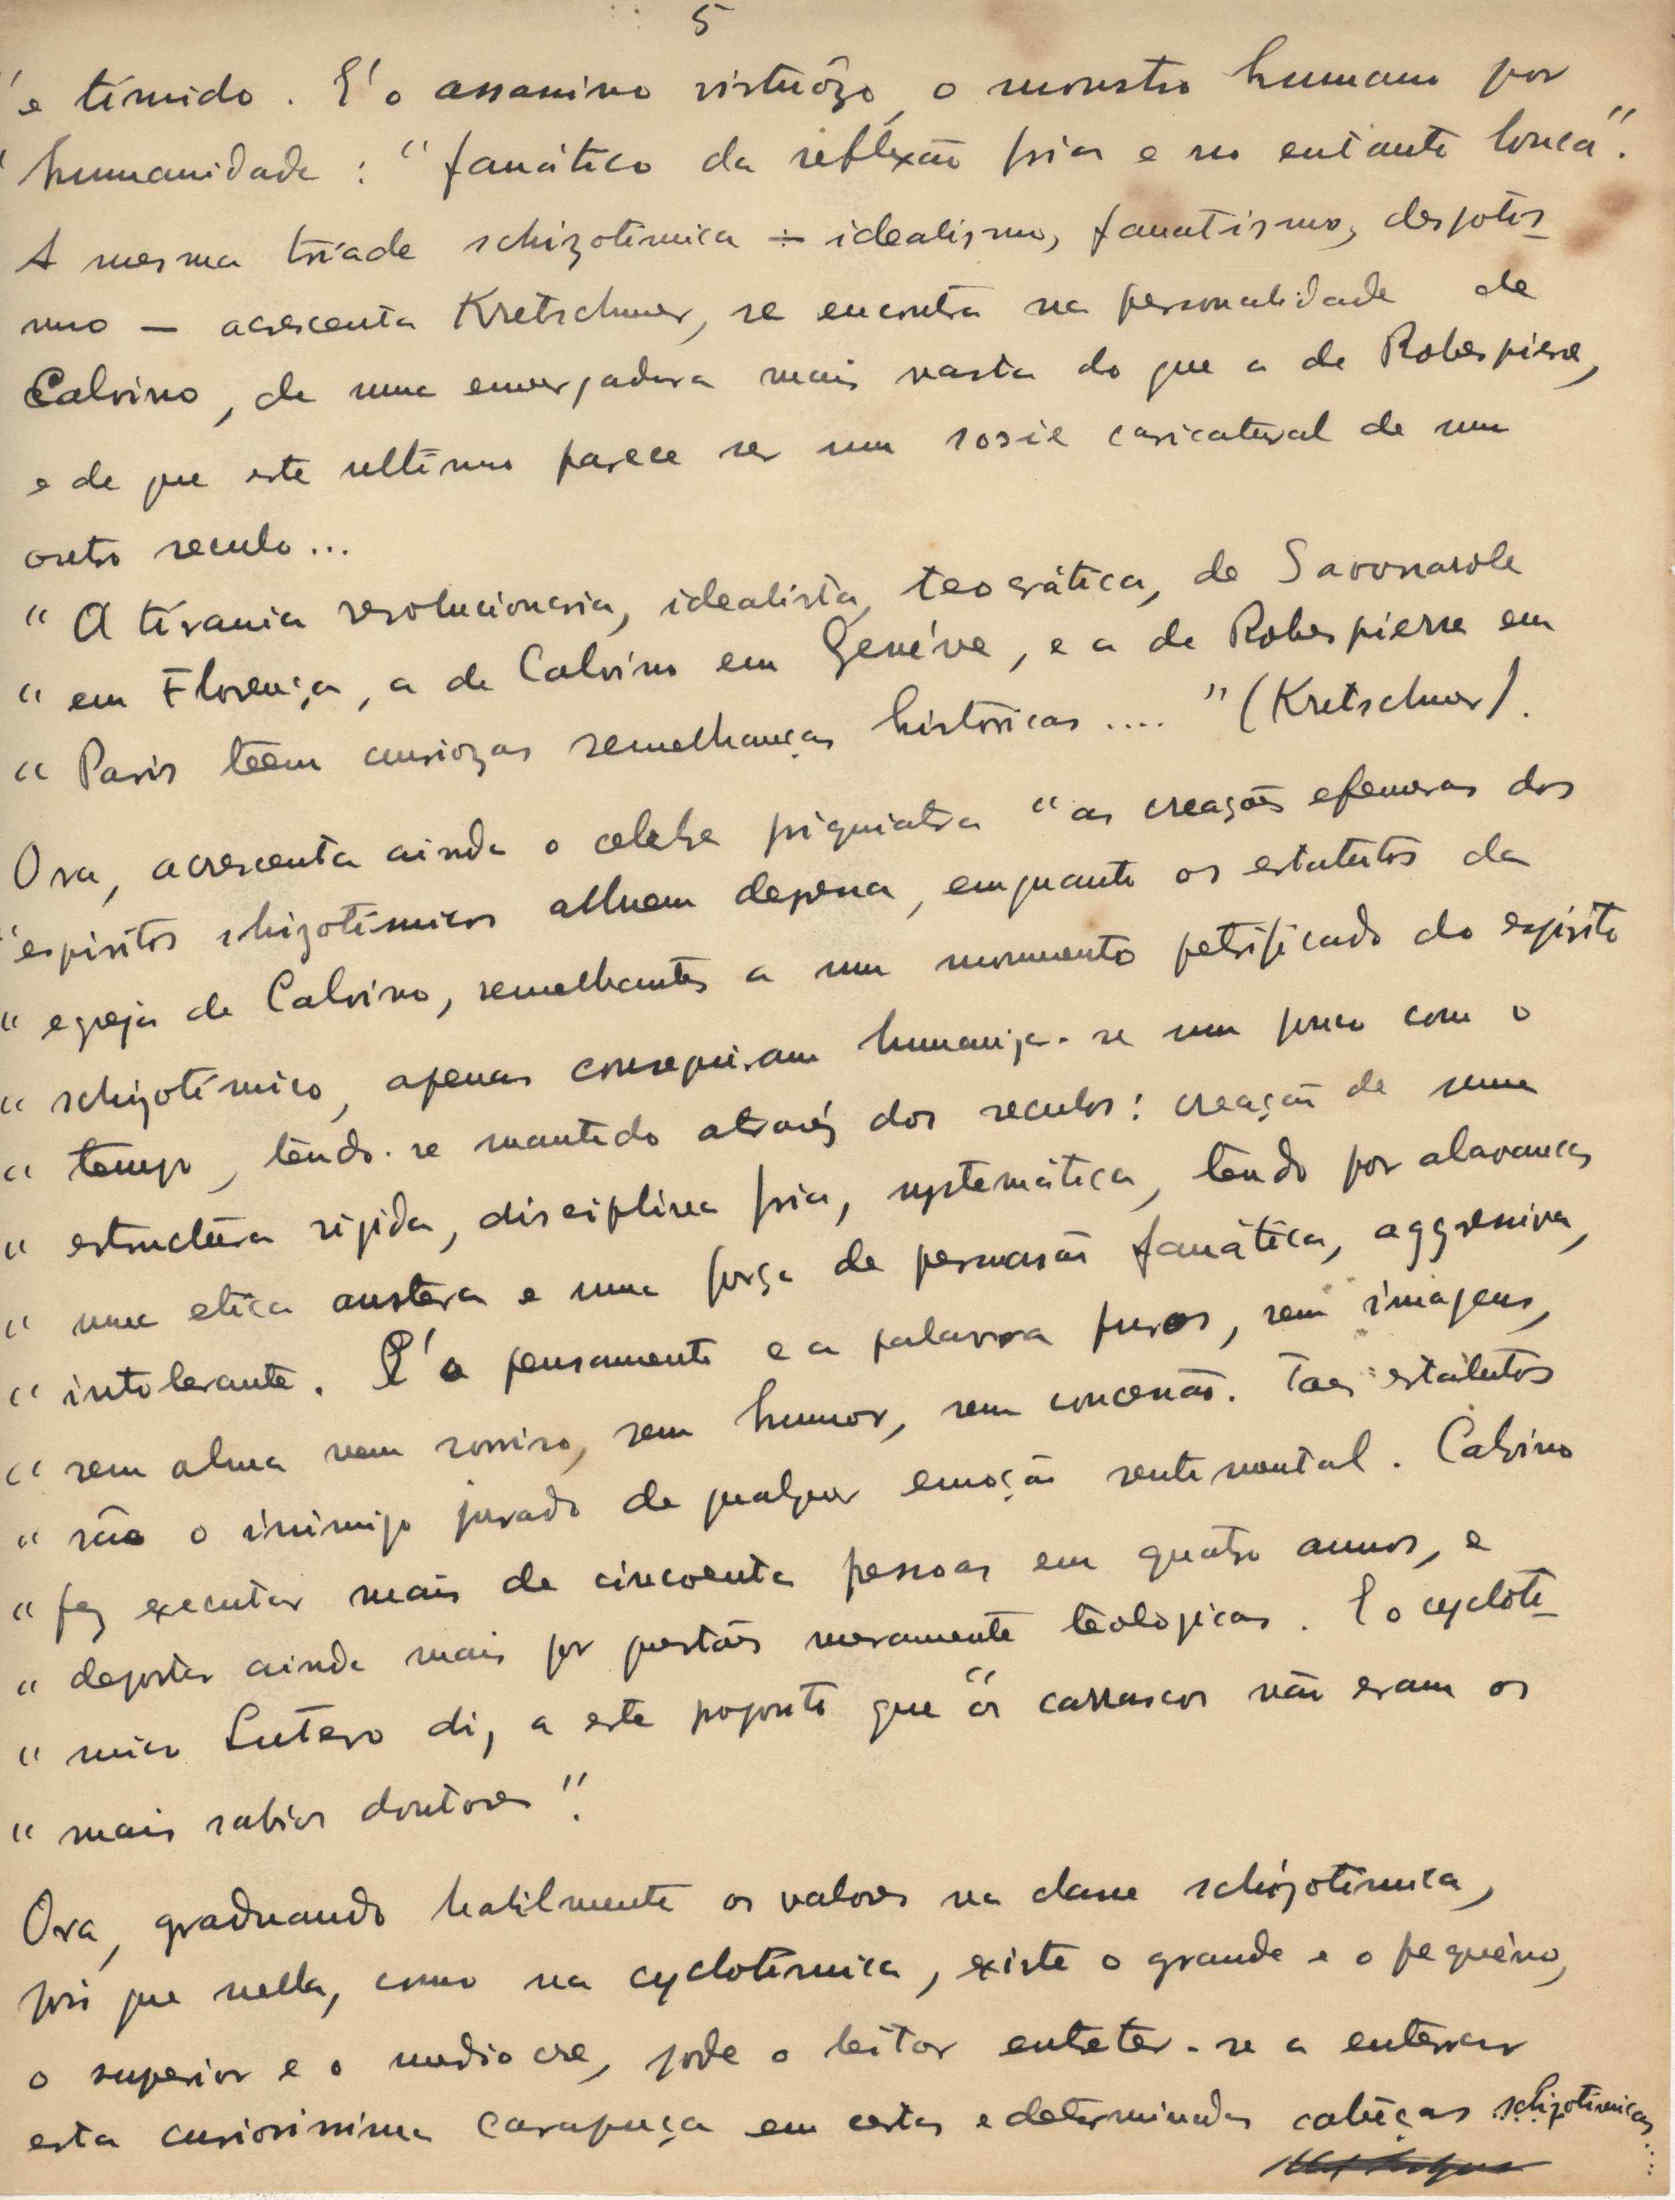 5
"e tímido. E'o assassino virtuózo, o monstro humano por
"humanidade: "fanático da reflexão fria e no entanto louca".
A mesma tríade schizotímica – idealismo, fanatismo, despotis-
mo — acrescenta Kretschmer, se encontra na personalidade de
Calvino, de uma envergadura mais vasta do que a de Robespierre,
e de que este ultimo parece ser um sosie caricatural de um
outro seculo...
" A tirania revolucionaria, idealista, teocrática, de Savonarole
" em Florença, a de Calvino em Genéve, e a de Robespierre em
" Paris teem curiozas semelhanças históricas ...." (Kretschmer).
Ora, acrescenta ainda o celebre psiquiatra "as creações efemeras dos
"espiritos shizotímicos alluem depressa, emquanto os estatutos da
" egreja de Calvino, semelhantes a um monumento petrificado do espirito
" schizotímico, apenas conseguiram humaniza-se um pouco com o
" tempo, tendo-se mantido atravéz dos seculos: creação de uma
" estructura rigida, disciplina fria, systemática, tendo por alavancas
" uma etica austera e uma força de persuasão fanática, aggressiva,
" intolerante. E'o pensamento e a palavra puros, sem imagens,
" sem alma nem sorriso, sem humor, sem concessão. Taes estátutos
" são o inimigo jurado de qualquer emoção sentimental. Calvino
" fez executar mais de cincoenta pessoas em quatro annos, e
" deportar ainda mais por questões meramente teologicas. E o cycloti-
" mico Lutero diz, a este proposito que "os carrascos não eram os
" mais sabios doutores".
Ora, graduando habilmente os valores na classe schizotimica,
pois que nella, como na cyclotímica, existe o grande e o pequêno,
o superior e o mediocre, pode o leitor entreter-se a enterrar
esta curiosissima carapuça em certas e determinadas cabêças schizotimicas....